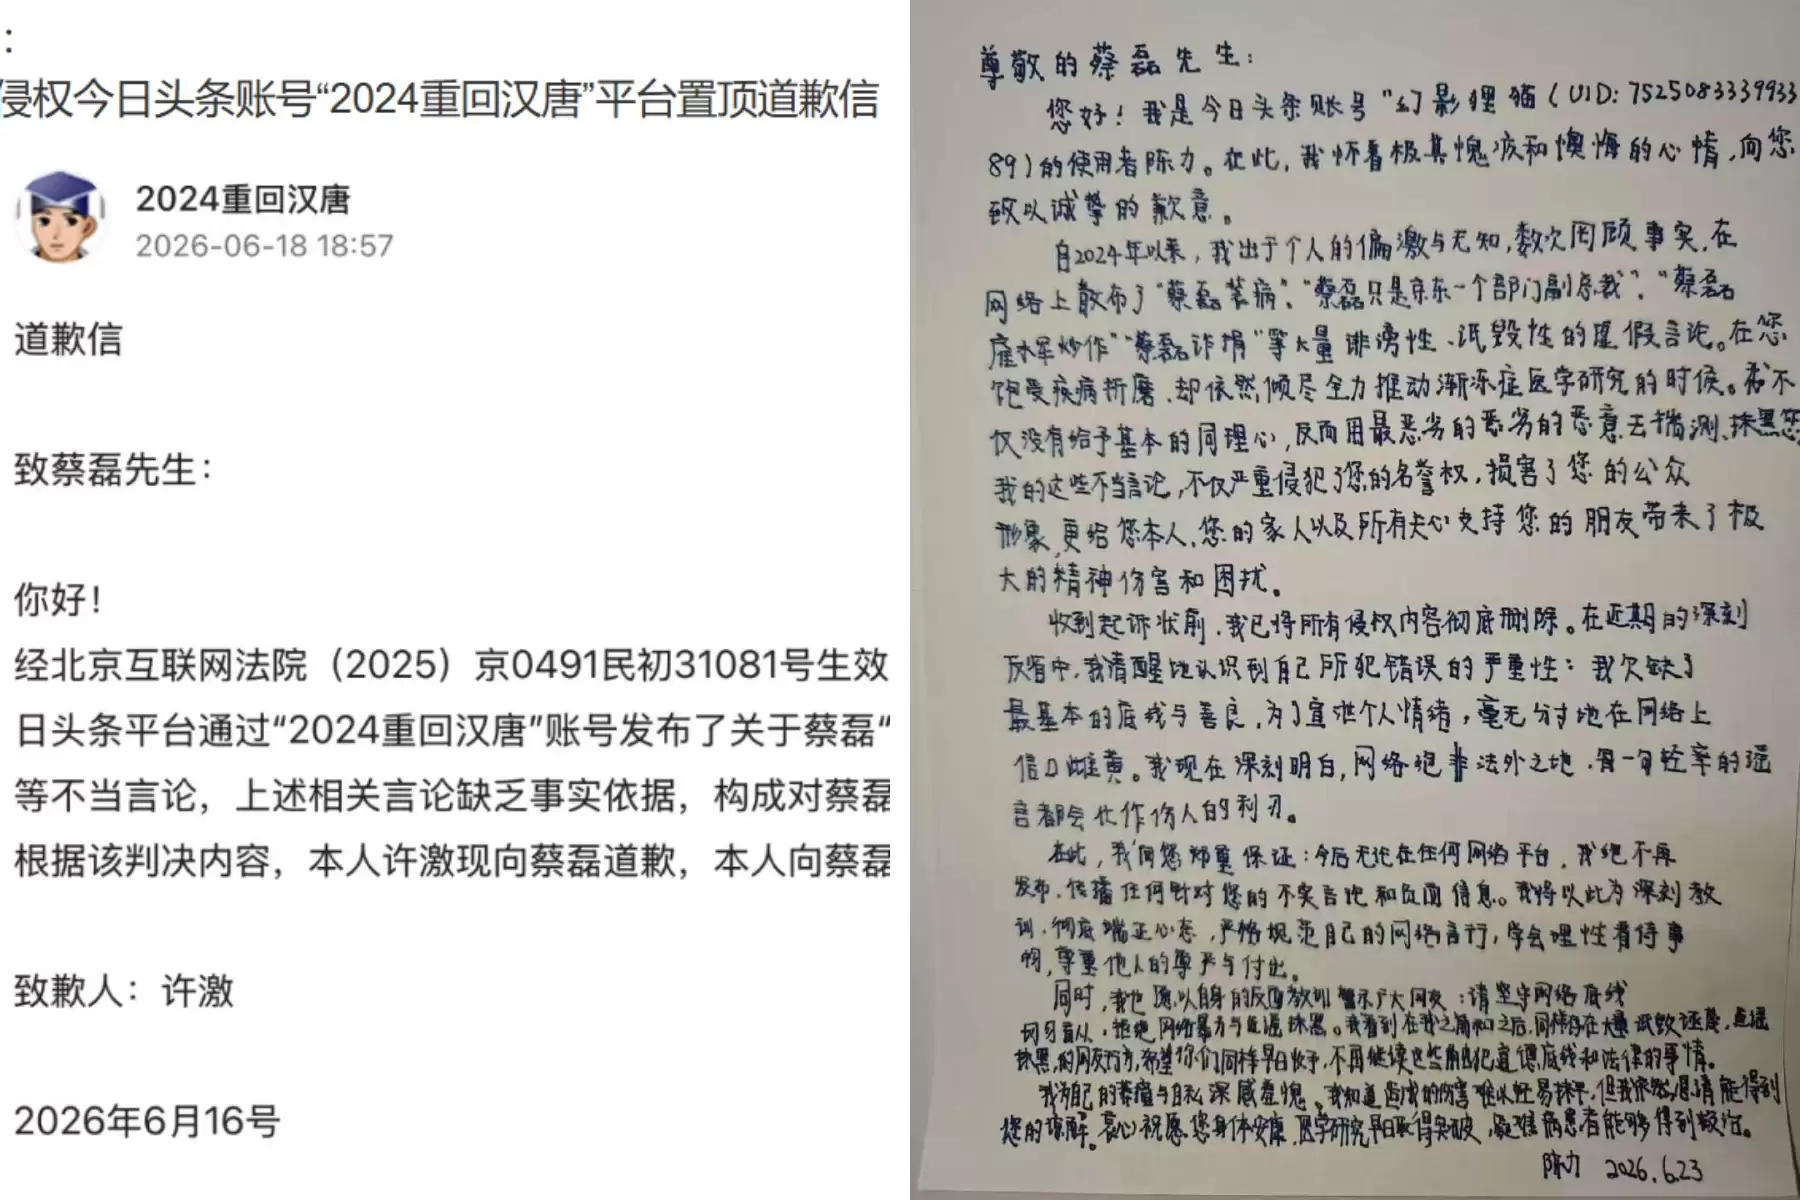 ：
侵权今日头条账号“2024重回汉唐”平台置顶道歉信
2024重回汉唐
2026-06-18 18:57
道歉信
致蔡磊先生：
你好！
经北京互联网法院（2025）京0491民初31081号生效
日头条平台通过“2024重回汉唐”账号发布了关于蔡磊“
等不当言论，上述相关言论缺乏事实依据，构成对蔡磊
根据该判决内容，本人许激现向蔡磊道歉，本人向蔡磊
致歉人：许激
2026年6月16号
尊敬的蔡磊先生：
您好！我是今日头条账号"幻影狸猫（UID：7525083339933
89）的使用者陈力。在此，我怀着极其愧疚和懊悔的心情，向您
致以诚挚的歉意。
自2024年以来，我出于个人的偏激与无知，数次罔顾事实，在
网络上散布了“蔡磊装病”、“蔡磊只是京东一个部门副总裁”、“蔡磊
雇水军炒作”“蔡磊诈捐”等大量诽谤性、诋毁性的虚假言论。在您
饱受疾病折磨、却依然倾尽全力推动渐冻症医学研究的时候。我不
仅没有给予基本的同理心，反而用最恶劣的恶劣的恶意去揣测、抹黑您
我的这些不当言论，不仅严重侵犯了您的名誉权，损害了您的公众
形象，更给您本人、您的家人以及所有关心支持您的朋友带来了极
大的精神伤害和困扰。
收到起诉状前，我已将所有侵权内容彻底删除。在近期的深刻
反省中，我清醒地认识到自己所犯错误的严重性：我欠缺了
最基本的底线与善良，为了宣泄个人情绪，毫无分寸地在网络上
信口雌黄。我现在深刻明白，网络绝非法外之地，每一句轻率的谣
言都会化作伤人的利刃。
在此，我向您郑重保证：今后无论在任何网络平台，我绝不再
发布、传播任何针对您的不实言论和负面信息。我将以此为深刻教
训，彻底端正心态，严格规范自己的网络言行，学会理性看待事
物，尊重他人的尊严与付出。
同时，我也愿以自身的反面教训警示广大网友：请坚守网络底线
切勿盲从，拒绝网络暴力与造谣抹黑。我看到在我之前和之后，同样存在大量诋毁诬蔑，造谣
抹黑的网友，希望你们同样早日收手，不再继续这些触犯道德底线和法律的事情。
我为自己的愚蠢与自私深感羞愧。我知道造成的伤害难以轻易抹平，但我依然恳请能得到
您的谅解。衷心祝愿您身体安康，医学研究早日取得突破，疑难病患者能够得到救治。
陈力 2026.6.23